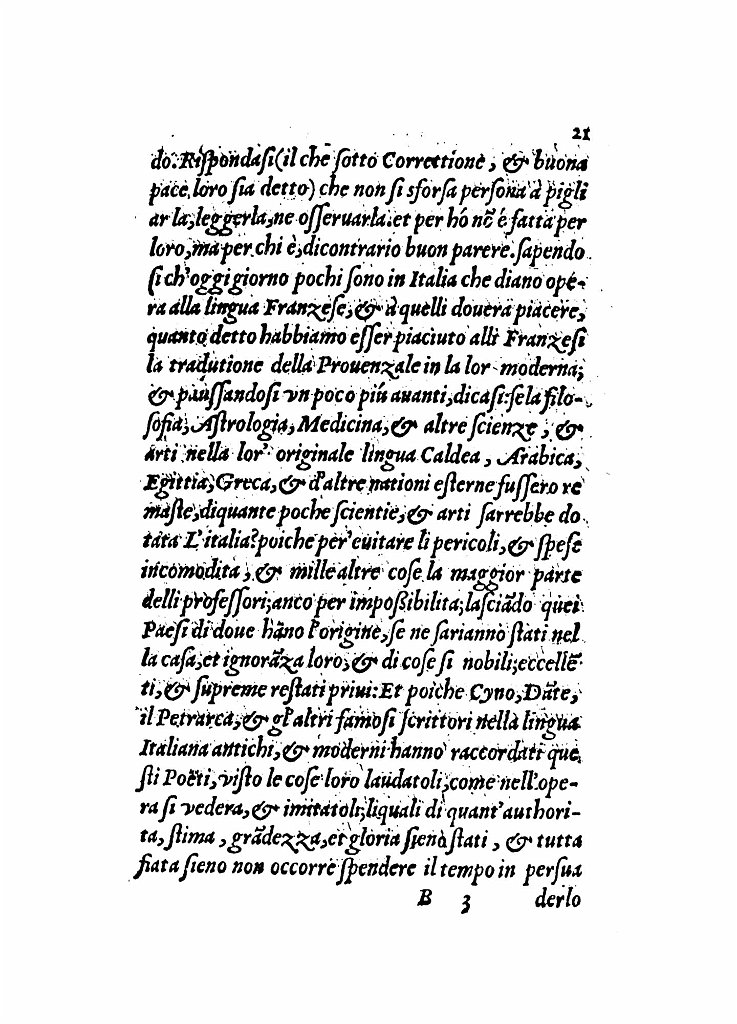 21
do. Rispondasi (il che sotto Correttione, & buona
pace loro sia detto) che non si sforsa persona à pigli
ar la, leggerla, ne osseruarla. et per hó nō é fatta per
loro, ma per chi è, dicontrario buon parere. sapendo
si ch'oggi giorno pochi sono in Italia che diano ope-
ra alla lingua Franzese, & à quelli douerà piacere,
quanto detto habbiamo esser piaciuto alli Franzesi
la tradutione della Prouenzale in la lor moderna;
& passandosi vn poco piú auanti, dicasi: se la filo-
sofia, Astrologia, Medicina, & altre scienze, &
arti nella lor' originale lingua Caldea, Arabica,
Egittia, Greca, & d'altre nationi esterne fussero re
maste, diquante poche scientie, & arti sarrebbe do
tata L'italia? poiche per' euitare li pericoli, & spese
incomodita, & mille altre cose la maggior parte
delli professori; anco per impoßibilita; lasciādo quei
Paesi di doue hāno l'origine, se ne sarianno stati nel
la casa, et ignorāza loro, & di cose si nobili; eccellē
ti, & supreme restati priui: Et poiche Cyno, Dāte,
il Petrarca, & gl'altri famosi scrittori nella lingua
Italiana antichi, & moderni hanno raccordati que
sti Poëti, visto le cose loro laudatoli, come nell'ope-
ra si vedera, & imitatoli; liquali di quant'authori-
ta, stima, grādezza, et gloria sieno stati, & tutta
fiata sieno non occorre spendere il tempo in persua
B 3 derlo